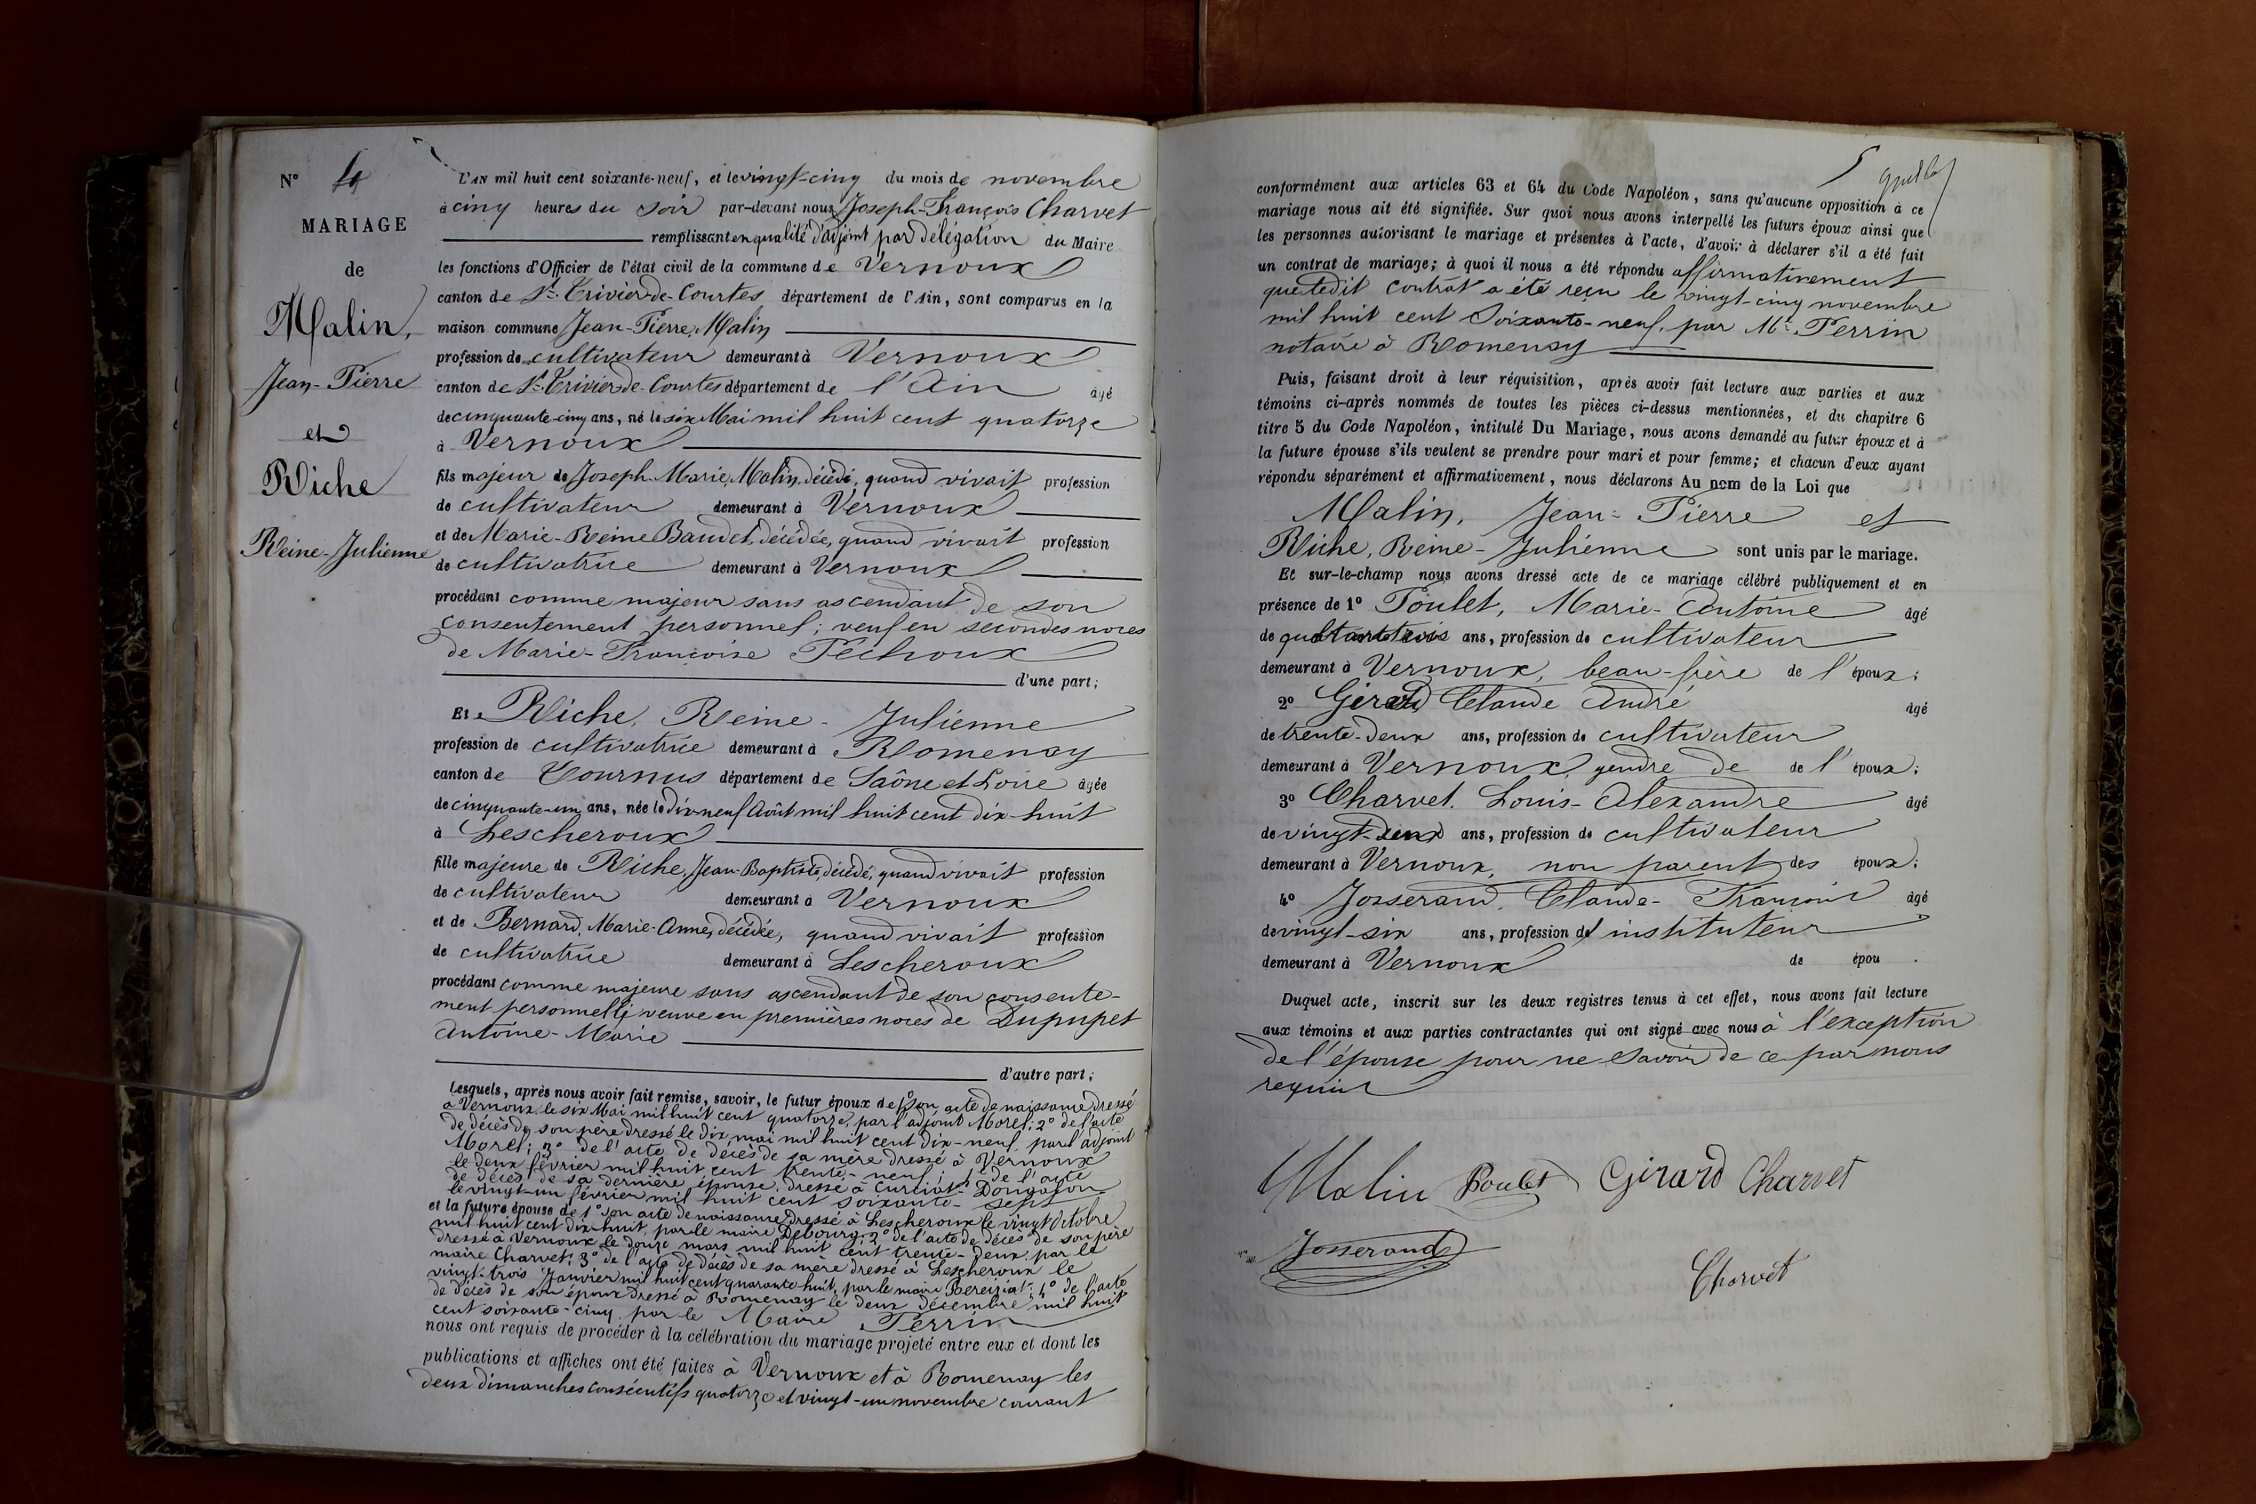 N° 4
MARIAGE
de
Malin,
Jean-Pierre
et
Riche
Reine-Julienne
L'AN mil huit cent soixante-neuf, et le vingt-cinq du mois de novembre
à cinq heures du soir par-devant nous Joseph-François Charvet
remplissant en qualité d'adjoint par délégation du Maire
les fonctions d'Officier de l'état civil de la commune de Vernoux
canton de St-Trivier-de-Courtes département de l'Ain, sont comparus en la
maison commune Jean-Pierre, Malin
profession de cultivateur demeurant à Vernoux
canton de St-Trivier-de-Courtes département de l'Ain âgé
de cinquante-cinq ans, né le six Mai mil huit cent quatorze
à Vernoux
fils majeur de Joseph-Marie, Malin, décédé, quand vivait profession
de cultivateur demeurant à Vernoux
et de Marie-Reine Baudet, décédée, quand vivait profession
de cultivatrice demeurant à Vernoux
procédant comme majeur sans ascendant de son
consentement personnel; veuf en secondes noces
de Marie-Françoise Péchoux
d'une part;
Et Riche, Reine-Julienne
profession de cultivatrice demeurant à Romenay
canton de Tournus département de Saône et Loire âgée
de cinquante-un ans, née le dix-neuf Août mil huit cent dix-huit
à Lescheroux
fille majeure de Riche, Jean-Baptiste, décédé, quand vivait profession
de cultivateur demeurant à Vernoux
et de Bernard, Marie-Anne, décédée, quand vivait profession
de cultivatrice demeurant à Lescheroux
procédant comme majeure sans ascendant de son consente-
ment personnel; veuve en premières noces de Dupupet
Antoine-Marie
d'autre part;
Lesquels, après nous avoir fait remise, savoir, le futur époux de 1° son acte de naissance dressé
à Vernoux le six Mai mil huit cent quatorze, par l'adjoint Morel; 2° de l'acte
de décès de son père dressé le dix mai mil huit cent dix-neuf par l'adjoint
Morel; 3° de l'acte de décès de sa mère dressé à Vernoux
le deux février mil huit cent trente-neuf; 4° de l'acte
de décès de sa dernière épouse, dressé à Curciat-Dongalon
le vingt-un février mil huit cent soixante-sept
et la future épouse de 1° son acte de naissance dressé à Lescheroux le vingt Octobre
mil huit cent dix-huit, par le maire Debourg; 2° de l'acte de décès de son père
dressé à Vernoux le douze mars mil huit cent trente-deux par le
maire Charvet; 3° de l'acte de décès de sa mère dressé à Lescheroux le
vingt-trois Janvier mil huit cent quarante-huit, par le maire Bereiziat; 4° de l'acte
de décès de son époux dressé à Romenay le deux décembre mil huit
cent soixante-cinq par le Maire Perrin
nous ont requis de procéder à la célébration du mariage projeté entre eux et dont les
publications et affiches ont été faites à Vernoux et à Romenay les
deux dimanches consécutifs quatorze et vingt-un novembre courant
5
conformément aux articles 63 et 64 du Code Napoléon, sans qu'aucune opposition à ce
mariage nous ait été signifiée. Sur quoi nous avons interpellé les futurs époux ainsi que
les personnes autorisant le mariage et présentes à l'acte, d'avoir à déclarer s'il a été fait
un contrat de mariage; à quoi il nous a été répondu affirmativement
que ledit contrat a été reçu le vingt-cinq novembre
mil huit cent soixante-neuf, par Me Perrin
notaire à Romenay
Puis, faisant droit à leur réquisition, après avoir fait lecture aux parties et aux
témoins ci-après nommés de toutes les pièces ci-dessus mentionnées, et du chapitre 6
titre 5 du Code Napoléon, intitulé Du Mariage, nous avons demandé au futur époux et à
la future épouse s'ils veulent se prendre pour mari et pour femme; et chacun d'eux ayant
répondu séparément et affirmativement, nous déclarons Au nom de la Loi que
Malin, Jean-Pierre et
Riche, Reine-Julienne sont unis par le mariage.
Et sur-le-champ nous avons dressé acte de ce mariage célébré publiquement et en
présence de 1° Poulet, Marie-Antoine âgé
de quarante-trois ans, profession de cultivateur
demeurant à Vernoux, beau-frère de l'époux;
2° Girard, Claude André âgé
de trente-deux ans, profession de cultivateur
demeurant à Vernoux, gendre de de l'époux;
3° Charvet, Louis-Alexandre âgé
de vingt-deux ans, profession de cultivateur
demeurant à Vernoux, non parent des époux;
4° Josserand, Claude-François âgé
de vingt-six ans, profession d'instituteur
demeurant à Vernoux de épou .
Duquel acte, inscrit sur les deux registres tenus à cet effet, nous avons fait lecture
aux témoins et aux parties contractantes qui ont signé avec nous à l'exception
de l'épouse pour ne savoir de ce par nous
requis
Malin Poulet Girard Charvet
Josserand
Charvet